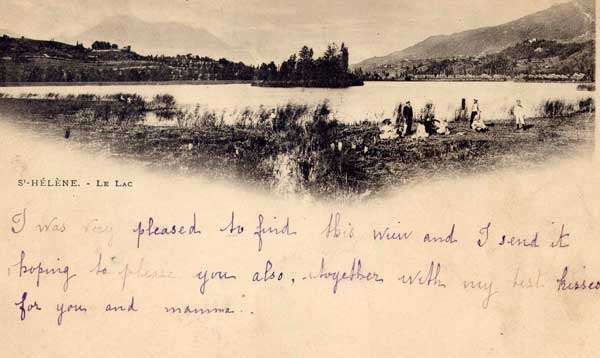 Sᵗ-HÉLÈNE. - LE LAC
I was very pleased to find this view and I send it
hoping to please you also, together with my best kisses
for you and mamma.